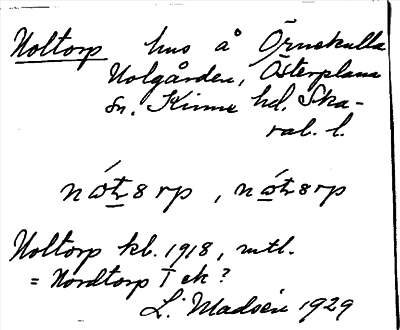 Noltorp hus å Örnekulla
Nolgården, Österplana
sn. Kinne hd. Ska-
rab. l.
Noltorp kb. 1918, rutl.
= Nordtorp I ek?
L. Madsén 1929